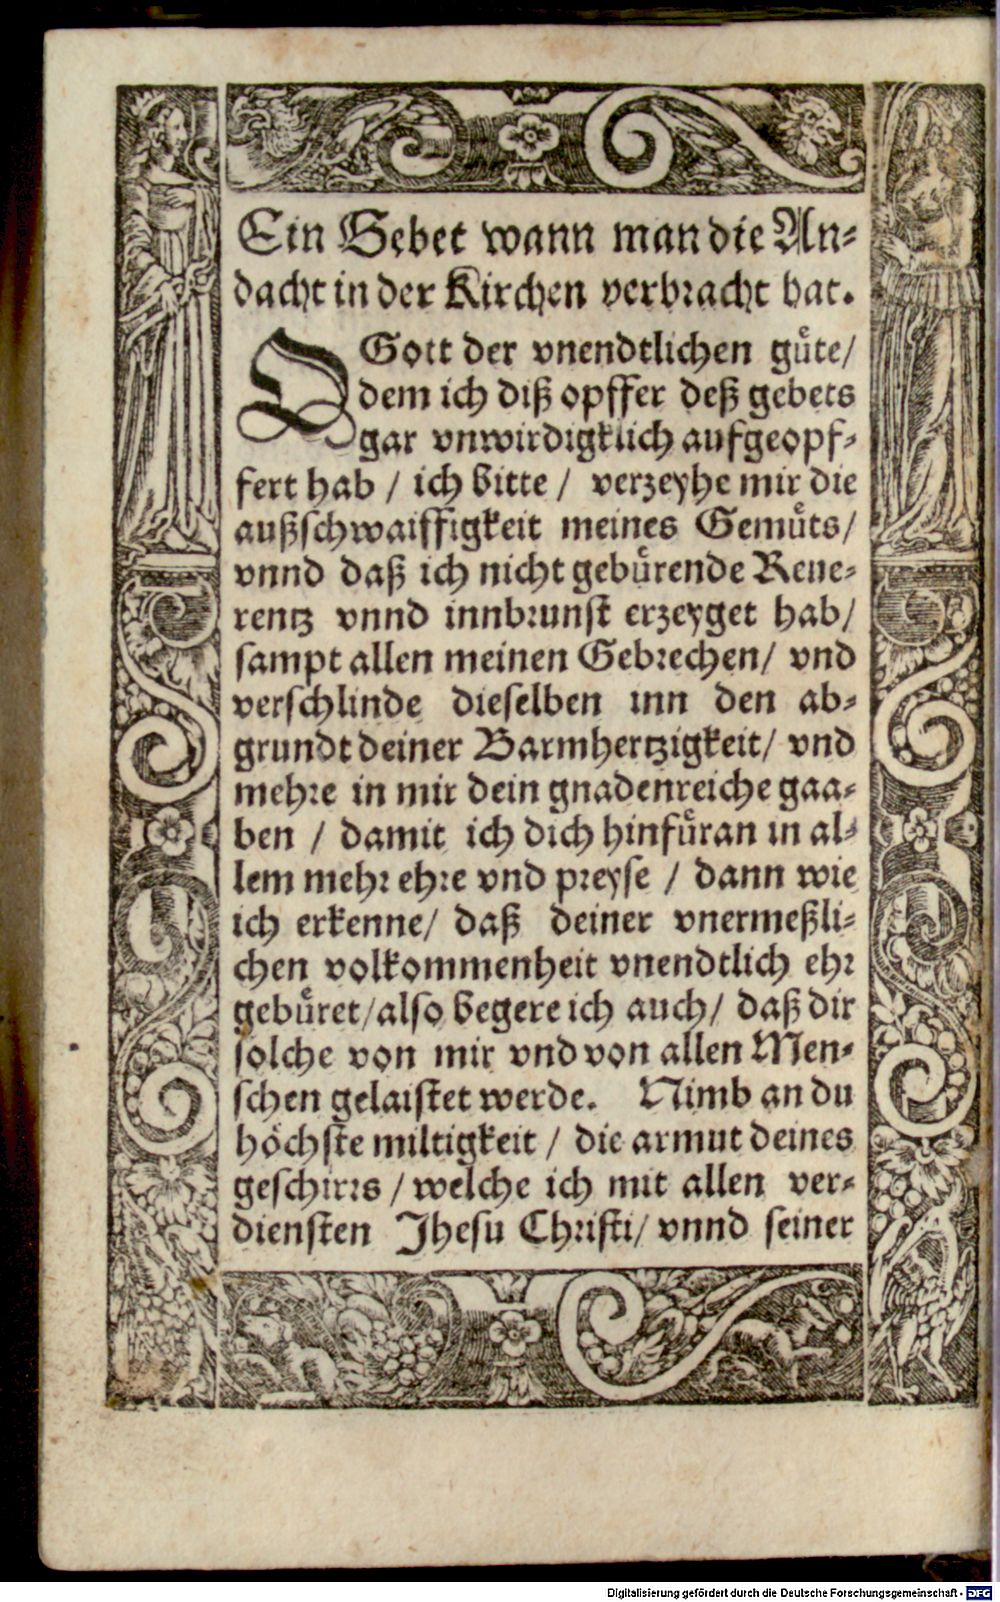 Ein Gebet wann man die An-
dacht in der Kirchen verbracht hat.
O Gott der vnendtlichen guͤte/
dem ich diß opffer deß gebets
gar vnwirdigklich aufgeopf-
fert hab / ich bitte / verzeyhe mir die
außschwaiffigkeit meines Gemuͤts/
vnnd daß ich nicht gebuͤrende Reue-
rentz vnnd innbrunst erzeyget hab/
sampt allen meinen Gebrechen/ vnd
verschlinde dieselben inn den ab-
grundt deiner Barmhertzigkeit/ vnd
mehre in mir dein gnadenreiche gaa-
ben / damit ich dich hinfuͤran in al-
lem mehr ehre vnd preyse / dann wie
ich erkenne/ daß deiner vnermeßli-
chen volkommenheit vnendtlich ehr
gebuͤret/also begere ich auch/ daß dir
solche von mir vnd von allen Men-
schen gelaistet werde. Nimb an du
hoͤchste miltigkeit / die armut deines
geschirrs / welche ich mit allen ver-
diensten Jhesu Christi/ vnnd seiner
Digitalisierung gefördert durch die Deutsche Forschungsgemeinschaft - DFG